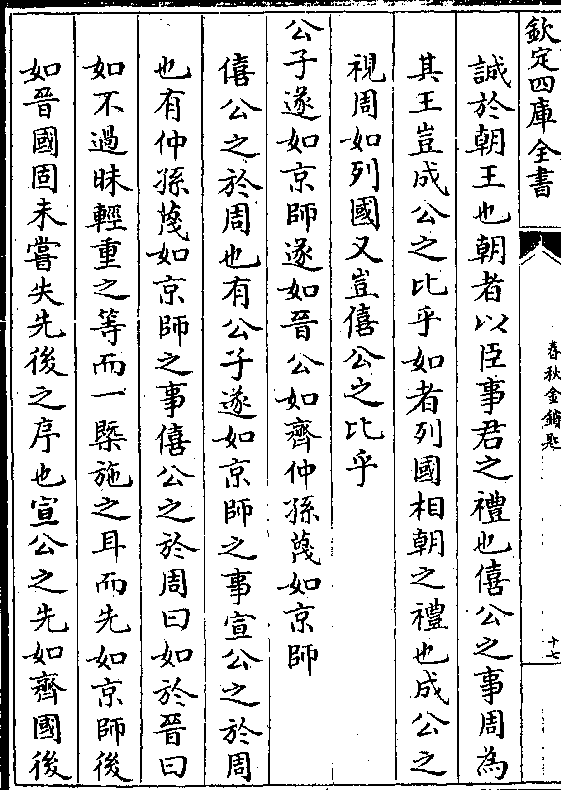 欽定四庫全書
春秋金鎖匙
十七
誠於朝王也朝者以臣事君之禮也僖公之事周為
其王豈成公之比乎如者列國相朝之禮也成公之
視周如列國又豈僖公之比乎
公子遂如京師遂如晉公如齊仲孫蔑如京師
僖公之於周也有公子遂如京師之事宣公之於周
也有仲孫蔑如京師之事僖公之於周曰如於晉曰
如不過昧輕重之等而一槩施之耳而先如京師後
如晉國固未嘗失先後之序也宣公之先如齊國後